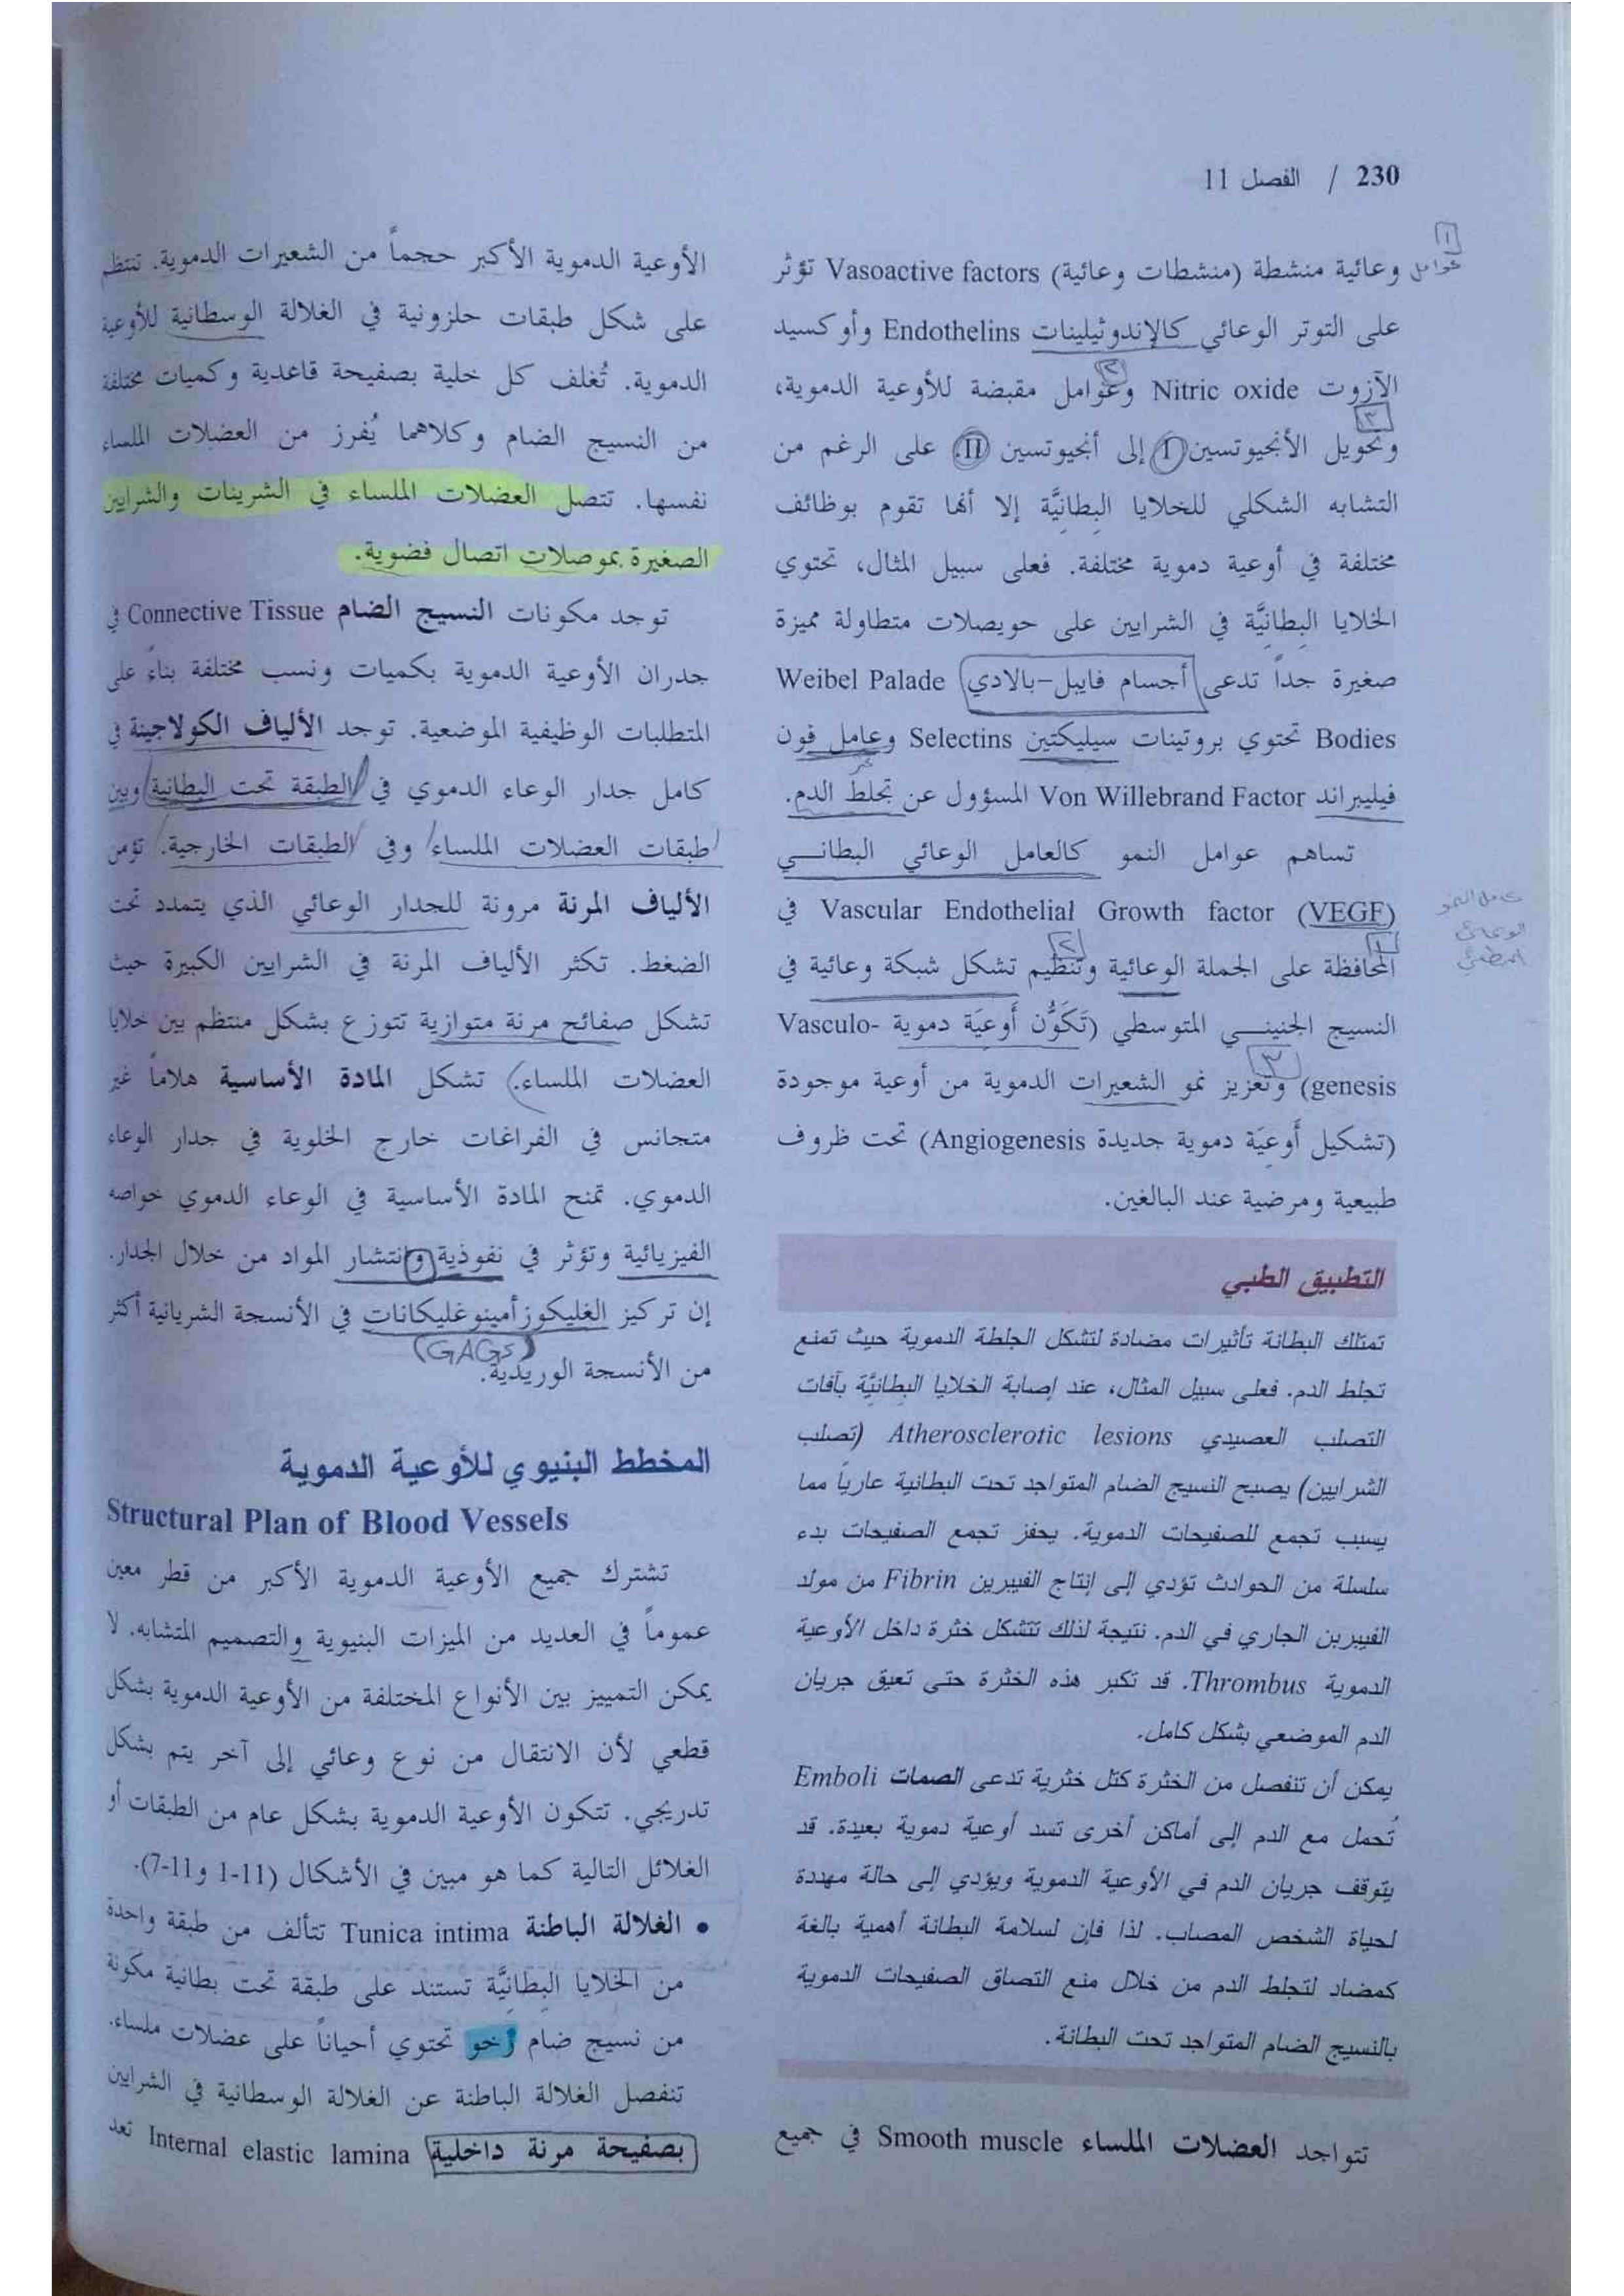 230 / الفصل 11
١
عوامل
وعائية منشطة (منشطات وعائية) Vasoactive factors تؤثر
على التوتر الوعائي كالإندوثيلينات Endothelins وأوكسيد
٢
الآزوت Nitric oxide وعوامل مقبضة للأوعية الدموية،
٣
وتحويل الأنجيوتسين I إلى أنجيوتسين II. على الرغم من
التشابه الشكلي للخلايا البِطانِيَّة إلا أنها تقوم بوظائف
مختلفة في أوعية دموية مختلفة. فعلى سبيل المثال، تحتوي
الخلايا البِطانِيَّة في الشرايين على حويصلات متطاولة مميزة
صغيرة جداً تدعى (أجسام فايبل-بالادي) Weibel Palade
Bodies تحتوي بروتينات سيليكتين Selectins وعامل فون
فيليبراند Von Willebrand Factor المسؤول عن تجلط الدم.
تساهم عوامل النمو كالعامل الوعائي البطاني
Vascular Endothelial Growth factor (VEGF) في
عامل النمو
الوعائي
البطاني
١ ٢
المحافظة على الجملة الوعائية وتنظيم تشكل شبكة وعائية في
النسيج الجنيني المتوسطي (تَكَوُّن أَوعِيَة دموية Vasculo-
٣
genesis) وتعزيز نمو الشعيرات الدموية من أوعية موجودة
(تشكيل أَوعِيَة دموية جديدة Angiogenesis) تحت ظروف
طبيعية ومرضية عند البالغين.
التطبيق الطبي
تمتلك البطانة تأثيرات مضادة لتشكل الجلطة الدموية حيث تمنع
تجلط الدم. فعلى سبيل المثال، عند إصابة الخلايا البِطانِيَّة بآفات
التصلب العصيدي Atherosclerotic lesions (تصلب
الشرايين) يصبح النسيج الضام المتواجد تحت البطانية عارياً مما
يسبب تجمع للصفيحات الدموية. يحفز تجمع الصفيحات بدء
سلسلة من الحوادث تؤدي إلى إنتاج الفيبرين Fibrin من مولد
الفيبرين الجاري في الدم. نتيجة لذلك تتشكل خثرة داخل الأوعية
الدموية Thrombus. قد تكبر هذه الخثرة حتى تعيق جريان
الدم الموضعي بشكل كامل.
يمكن أن تنفصل من الخثرة كتل خثرية تدعى الصمات Emboli
تُحمل مع الدم إلى أماكن أخرى تسد أوعية دموية بعيدة. قد
يتوقف جريان الدم في الأوعية الدموية ويؤدي إلى حالة مهددة
لحياة الشخص المصاب. لذا فإن لسلامة البطانة أهمية بالغة
كمضاد لتجلط الدم من خلال منع التصاق الصفيحات الدموية
بالنسيج الضام المتواجد تحت البطانة.
تتواجد العضلات الملساء Smooth muscle في جميع
الأوعية الدموية الأكبر حجماً من الشعيرات الدموية. تنتظم
على شكل طبقات حلزونية في الغلالة الوسطانية للأوعية
الدموية. تُغلف كل خلية بصفيحة قاعدية وكميات مختلفة
من النسيج الضام وكلاهما يُفرز من العضلات الملساء
نفسها. تتصل العضلات الملساء في الشرينات والشرايين
الصغيرة بموصلات اتصال فضوية.
توجد مكونات النسيج الضام Connective Tissue في
جدران الأوعية الدموية بكميات ونسب مختلفة بناءً على
المتطلبات الوظيفية الموضعية. توجد الألياف الكولاجينة في
كامل جدار الوعاء الدموي في الطبقة تحت البطانية وبين
طبقات العضلات الملساء وفي الطبقات الخارجية. تؤمن
الألياف المرنة مرونة للجدار الوعائي الذي يتمدد تحت
الضغط. تكثر الألياف المرنة في الشرايين الكبيرة حيث
تشكل صفائح مرنة متوازية تتوزع بشكل منتظم بين خلايا
العضلات الملساء. تشكل المادة الأساسية هلاماً غير
متجانس في الفراغات خارج الخلوية في جدار الوعاء
الدموي. تمنح المادة الأساسية في الوعاء الدموي خواصه
الفيزيائية وتؤثر في نفوذية وانتشار المواد من خلال الجدار.
إن تركيز الغليكوزأمينوغليكانات في الأنسجة الشريانية أكثر
(GAGs)
من الأنسجة الوريدية.
المخطط البنيوي للأوعية الدموية
Structural Plan of Blood Vessels
تشترك جميع الأوعية الدموية الأكبر من قطر معين
عموماً في العديد من الميزات البنيوية والتصميم المتشابه. لا
يمكن التمييز بين الأنواع المختلفة من الأوعية الدموية بشكل
قطعي لأن الانتقال من نوع وعائي إلى آخر يتم بشكل
تدريجي. تتكون الأوعية الدموية بشكل عام من الطبقات أو
الغلائل التالية كما هو مبين في الأشكال (11-1 و11-7).
• الغلالة الباطنة Tunica intima تتألف من طبقة واحدة
من الخلايا البِطانِيَّة تستند على طبقة تحت بطانية مكونة
من نسيج ضام رخو تحتوي أحياناً على عضلات ملساء.
تنفصل الغلالة الباطنة عن الغلالة الوسطانية في الشرايين
بصفيحة مرنة داخلية Internal elastic lamina تعد